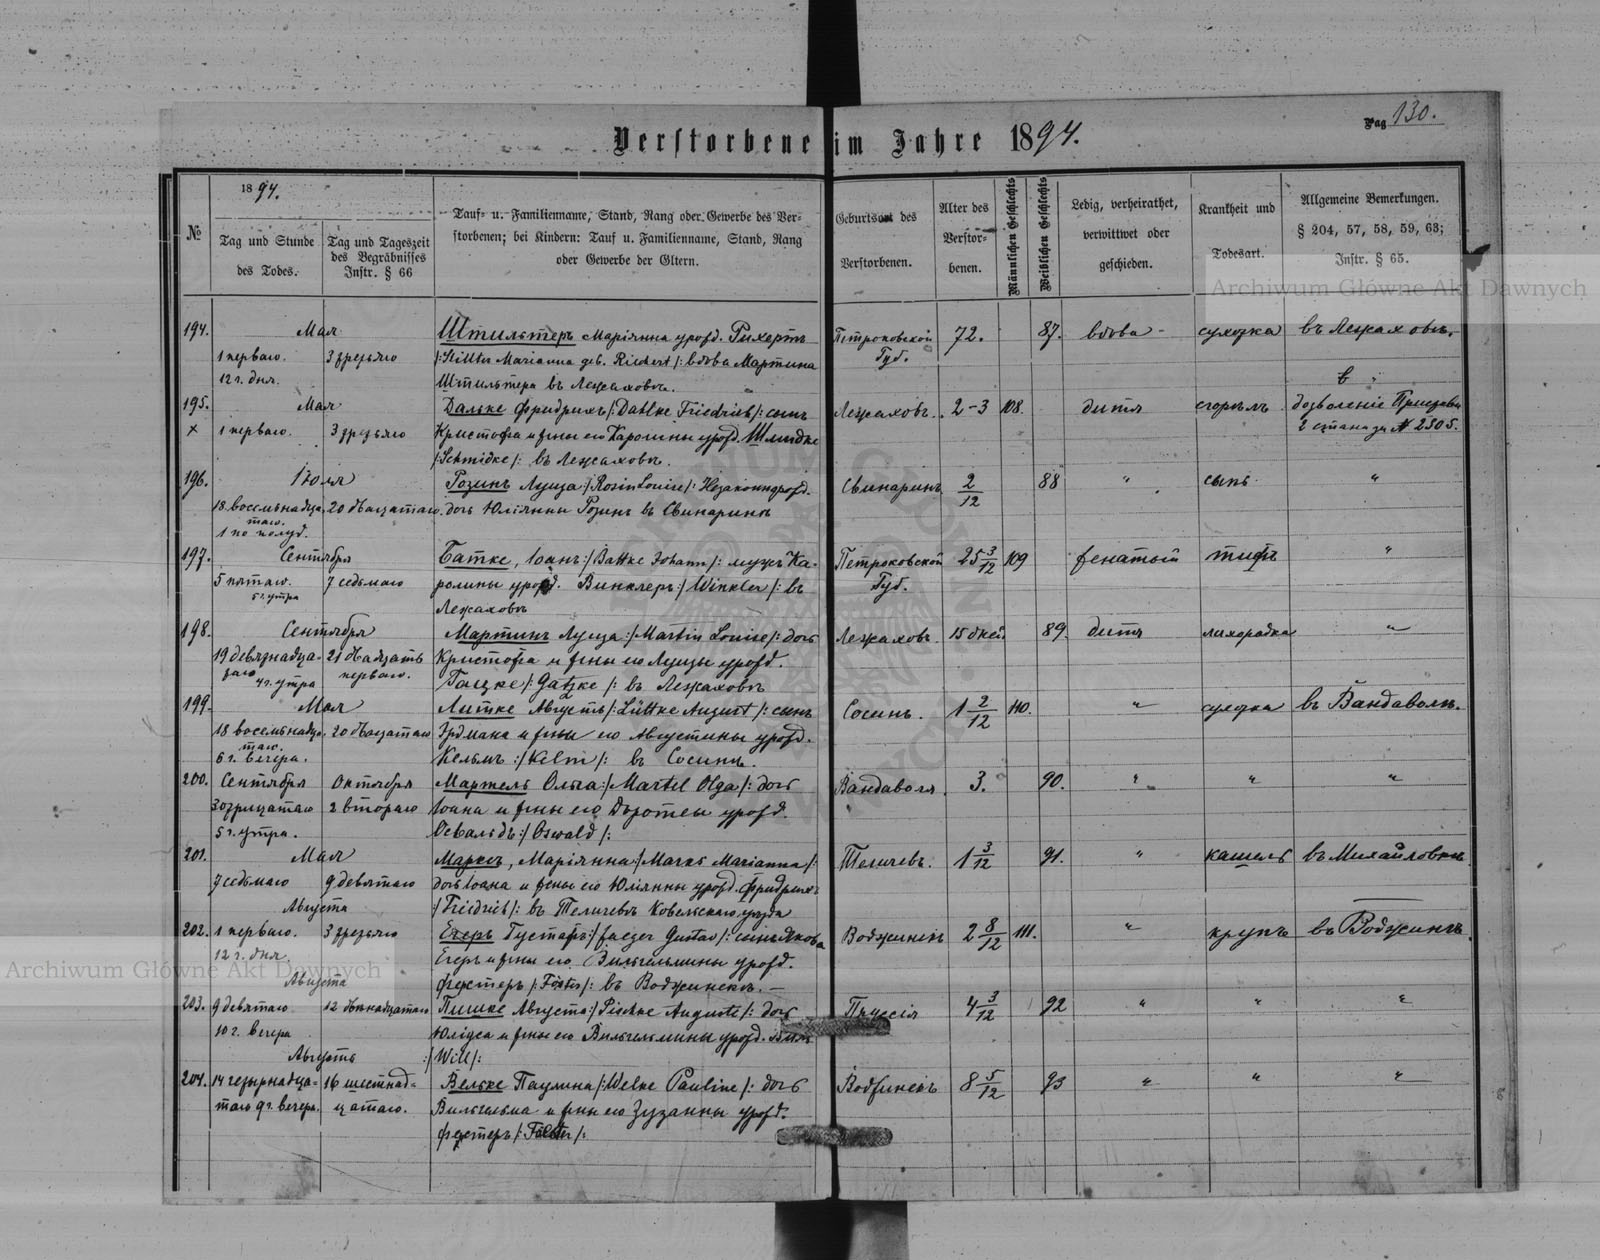 Verstorbene im Jahre 1894.
Pag 130.
№
1894.
Tag und Stunde
des Todes.
Tag und Tageszeit
des Begräbnisses
Instr. § 66
Tauf- u. Familienname, Stand, Rang oder Gewerbe des Ver-
storbenen; bei Kindern: Tauf u. Familienname, Stand, Rang
oder Gewerbe der Eltern.
Geburtsort des
Verstorbenen.
Alter des
Verstor-
benen.
Männlichen Geschlechts
Weiblichen Geschlechts
Ledig, verheirathet,
verwittwet oder
geschieden.
Krankheit und
Todesart.
Allgemeine Bemerkungen.
§ 204, 57, 58, 59, 63;
Instr. § 65.
Archiwum Główne Akt Dawnych
194. Мая Штильтеръ Маріянна урожд. Рихертъ Петроковской 72. 87. вдова сухотка въ Лежаховъ.
1 перваго. 3 третьяго /:Stilter Marianna geb. Riechert/: вдова Мартина Губ.
12 г. дня. Штильтера въ Лежаховъ.
195. Мая Дальке Фридрихъ /:Dahlke Friedrich/: сынъ Лежаховъ. 2-3 108. дитя сгорелъ дозволеніе
× 1 перваго. 3 третьяго Кристофа и жены его Каролины урожд. Шмидке 2 стана за № 2305.
/:Schmidke/: въ Лежаховъ.
196. Іюля Розинъ Луиза :/Rosin Louise/: Незаконнорожд. Свинаринъ 2/12 88 " сыпь "
18 восемьнадца 20 двацатаго. дочь Юліянны Розинъ въ Свинаринъ
таго.
1 по полуд.
197. Сентября Батке, Іоанъ :/Battke Johann/: мужъ Ка- Петроковской 25 3/12 109 женатый тифъ "
5 пятаго. 7 седьмаго ролины урожд. Винклеръ :/Winkler/: въ Губ.
5 г. утра Лежаховъ
198. Сентября Мартинъ Луиза :/Martin Louise/: дочь Лежаховъ. 15 дней. 89. дитя лихорадка "
19 девятнадца- 21 двадцать Кристофа и жены его Луизы урожд.
таго 4 г. утра перваго. Гацке /:Gatzke/: въ Лежаховъ
199. Мая Литке Августъ /:Lüttke August/: сынъ Сосинъ. 1 2/12 110. " сухотка въ Вандаволъ.
18 восемьнадца. 20 двацатаго Эрдмана и жены его Августины урожд.
таго.
6 г. вечера. Кельмъ :/Kelm/: въ Сосинъ.
200. Сентября Октября Мартель Ольга :/Martel Olga/: дочь Вандаволя. 3. 90. " " "
30 трицатаго 2 втораго Іоана и жены его Доротеы урожд.
5 г. утра. Освальдъ :/Oswald/:
201. Мая Марксъ, Маріянна :/Marks Marianna/: Теличевъ. 1 3/12 91. " кашель въ Михайловкъ
7 седьмаго 9 девятаго дочь Іоана и жены его Юліянны урожд. Фридрихъ
Августа :/Friedrich/: въ Теличевъ Ковельскаго уезда
202. 1 перваго. 3 третьяго Егеръ Густафъ :/Jaeger Gustav/: сынъ Якова Воджинекъ 2 8/12 111. " крупъ въ Воджинъ.
12 г. дня. Егеръ и жены его Вильгельмины урожд.
Августа Ферстеръ /:Förster/: въ Воджинекъ.
203. 9 девятаго 12 двенацатаго Пишке Августа :/Pischke Auguste/: дочь Пруссія 4 3/12 92 " " "
10 г. вечера и жены его Вильгельмины урожд. Виль
Августъ :/Will/:
204. 14 четырнадца= 16 шестнад= Вельке Паулина /:Welke Pauline/: дочь Воджинекъ 8 5/12 93 " " "
таго 9 г. вечера. цатаго. Вильгельма и жены его Зузанны урожд.
Ферстеръ /:Förster/:
Archiwum Główne Akt Dawnych